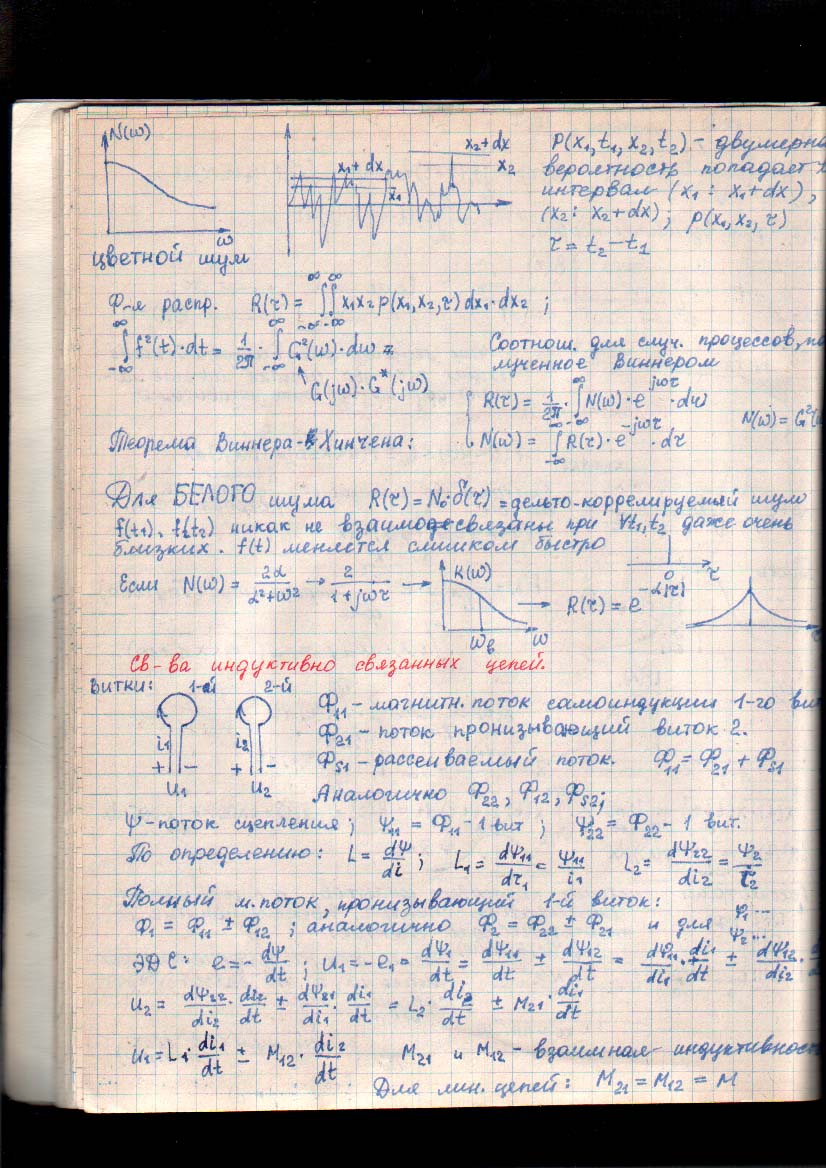 N(ω)
ω
цветной шум
x₁+dx
x₁
x₂+dx
x₂
P(x₁,t₁,x₂,t₂) – двумерна
вероятность попадает
интервал (x₁ : x₁+dx),
(x₂ : x₂+dx); p(x₁,x₂,τ)
τ = t₂ – t₁
Ф-я распр. R(τ) = ∫_{-∞}^{∞} ∫_{-∞}^{∞} x₁x₂ p(x₁,x₂,τ) dx₁·dx₂ ;
∫_{-∞}^{∞} f²(t)·dt = 1/2π · ∫_{-∞}^{∞} G²(ω)·dω =
G(jω)·G*(jω)
Соотнош. для случ. процессов, по
лученное Виннером
R(τ) = 1/2π · ∫_{-∞}^{∞} N(ω)·e^{jωτ}·dω
N(ω) = ∫_{-∞}^{∞} R(τ)·e^{-jωτ}·dτ
N(ω) = G²(
Теорема Виннера-Хинчена:
Для БЕЛОГО шума R(τ) = N₀·δ(τ) = дельто-коррелируемый шум
f(t₁), f(t₂) никак не взаимосвязаны при ∀t₁,t₂ даже очень
близких. f(t) меняется слишком быстро
0 τ
Если N(ω) = 2α/(α²+ω²) → 2/(1+jωτ) →
K(ω)
ω_в ω
→ R(τ) = e^{-α|τ|}
Св-ва индуктивно связанных цепей.
Витки: 1-й 2-й
i₁ i₂
+ – + –
u₁ u₂
Ф₁₁ – магнитн. поток самоиндукции 1-го вит
Ф₂₁ – поток пронизывающий виток 2.
Ф_{S1} – рассеиваемый поток. Ф₁₁ = Ф₂₁ + Ф_{S1}
Аналогично Ф₂₂, Ф₁₂, Ф_{S2};
Ψ – поток сцепления; Ψ₁₁ = Ф₁₁ – 1 вит ; Ψ₂₂ = Ф₂₂ – 1 вит.
По определению: L = dΨ/di ; L₁ = dΨ₁₁/dτ₁ = Ψ₁₁/i₁ L₂ = dΨ₂₂/di₂ = Ψ₂/i₂
Полный м. поток, пронизывающий 1-й виток:
Ф₁ = Ф₁₁ ± Ф₁₂ ; аналогично Ф₂ = Ф₂₂ ± Ф₂₁ и для Ψ₁... Ψ₂...
ЭДС: e = – dΨ/dt ; u₁ = –e₁ = dΨ₁/dt = dΨ₁₁/dt ± dΨ₁₂/dt = dΨ₁₁/di₁ · di₁/dt ± dΨ₁₂/di₂ ·
u₂ = dΨ₂₂/di₂ · di₂/dt ± dΨ₂₁/di₁ · di₁/dt = L₂ · di₂/dt ± M₂₁ · di₁/dt
u₁ = L₁ · di₁/dt ± M₁₂ · di₂/dt M₂₁ и M₁₂ – взаимная индуктивность
Для лин. цепей: M₂₁ = M₁₂ = M